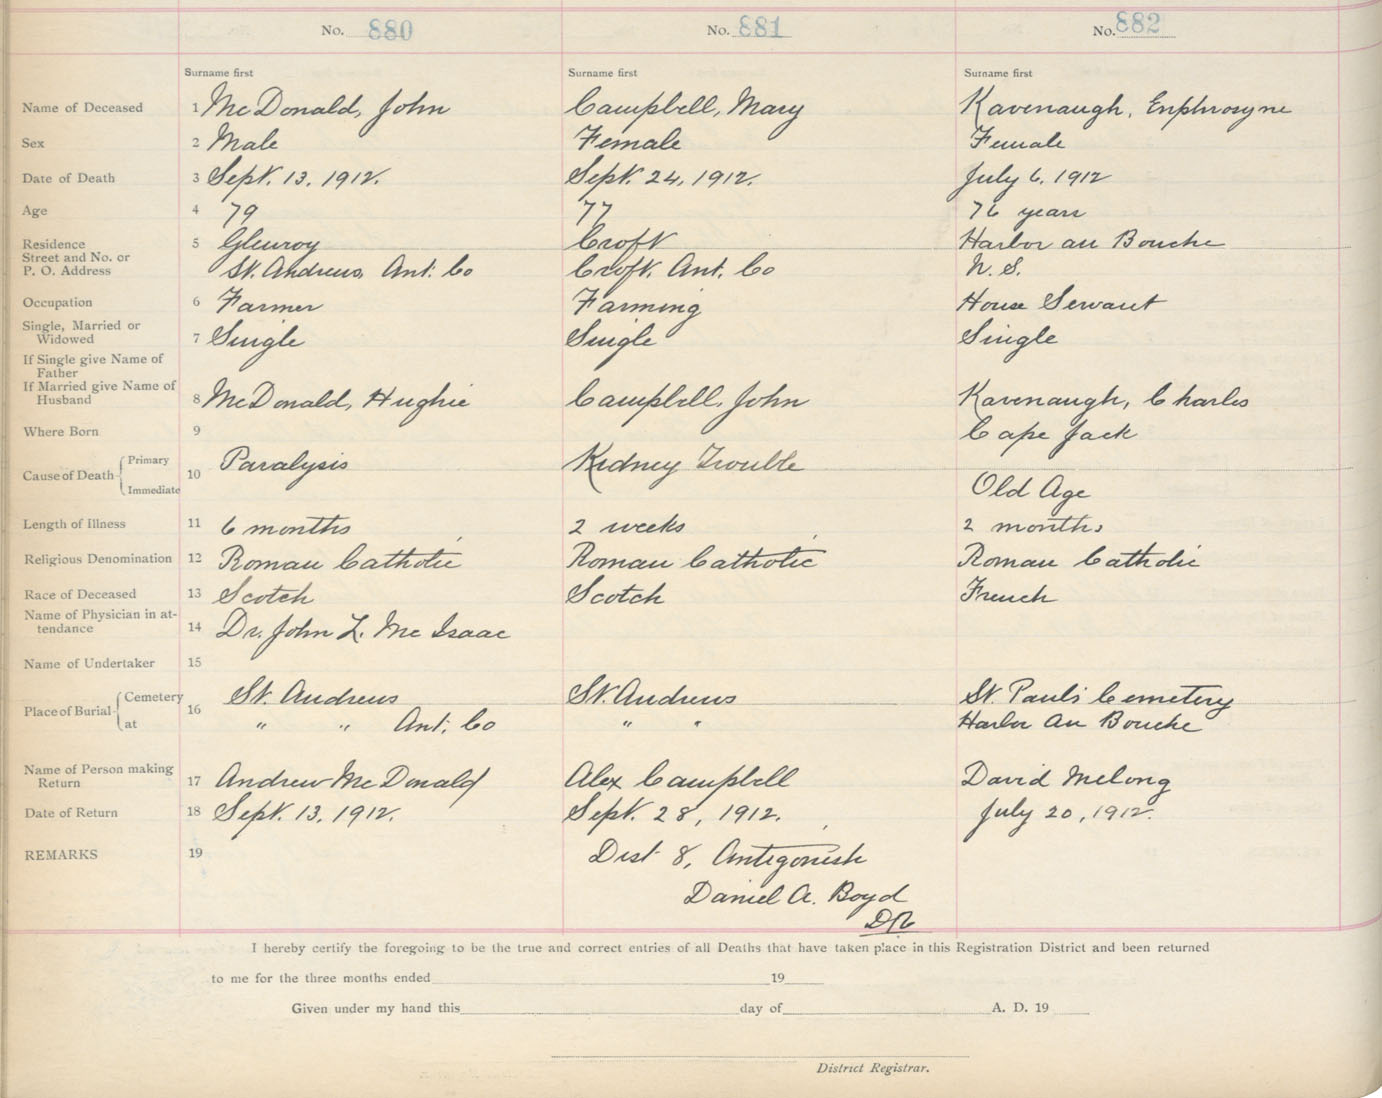 No. 880 No. 881 No. 882
Surname first Surname first Surname first
Name of Deceased 1 McDonald, John Campbell, Mary Kavenaugh, Enphrosyne
Sex 2 Male Female Female
Date of Death 3 Sept. 13, 1912. Sept. 24, 1912. July 6, 1912
Age 4 79 77 76 years
Residence 5 Glenroy Croft Harbor au Bouche
Street and No. or
P. O. Address St. Andrews, Ant. Co Croft, Ant. Co N. S.
Occupation 6 Farmer Farming House Servant
Single, Married or
Widowed 7 Single Single Single
If Single give Name of
Father
If Married give Name of
Husband 8 McDonald, Hughie Campbell, John Kavenaugh, Charles
Where Born 9 Cape Jack
Cause of Death Primary 10 Paralysis Kidney Trouble
Immediate Old Age
Length of Illness 11 6 months 2 weeks 2 months
Religious Denomination 12 Roman Catholic Roman Catholic Roman Catholic
Race of Deceased 13 Scotch Scotch French
Name of Physician in at-
tendance 14 Dr. John L. McIsaac
Name of Undertaker 15
Place of Burial Cemetery 16 St. Andrews St. Andrews St. Paul's Cemetery
at " " Ant. Co " " Harbor Au Bouche
Name of Person making
Return 17 Andrew McDonald Alex Campbell David Melong
Date of Return 18 Sept. 13, 1912. Sept. 28, 1912. July 20, 1912.
REMARKS 19 Dist 8, Antigonish
Daniel A. Boyd
DR
I hereby certify the foregoing to be the true and correct entries of all Deaths that have taken place in this Registration District and been returned
to me for the three months ended 19
Given under my hand this day of A. D. 19
District Registrar.